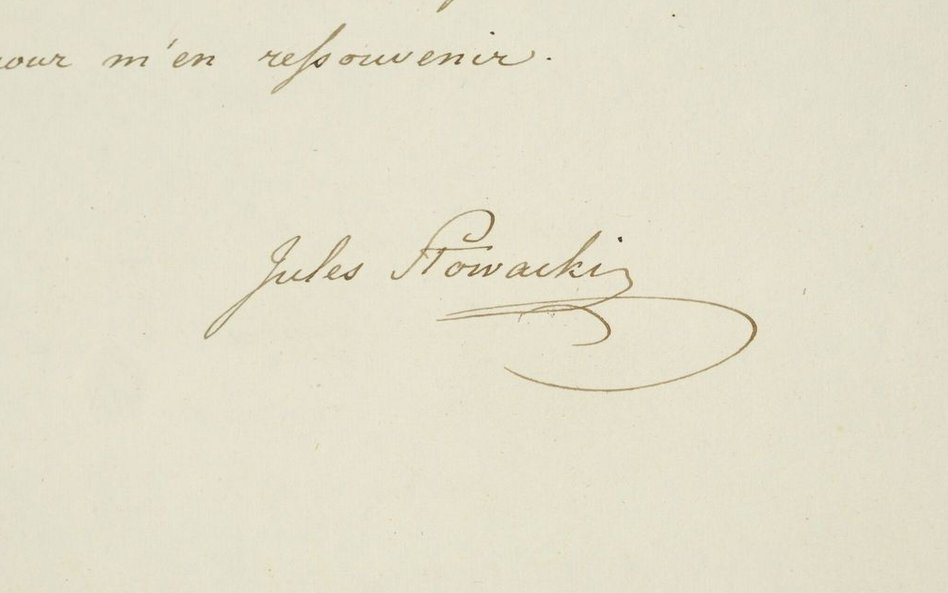 pour m'en ressouvenir.
Jules Słowacki